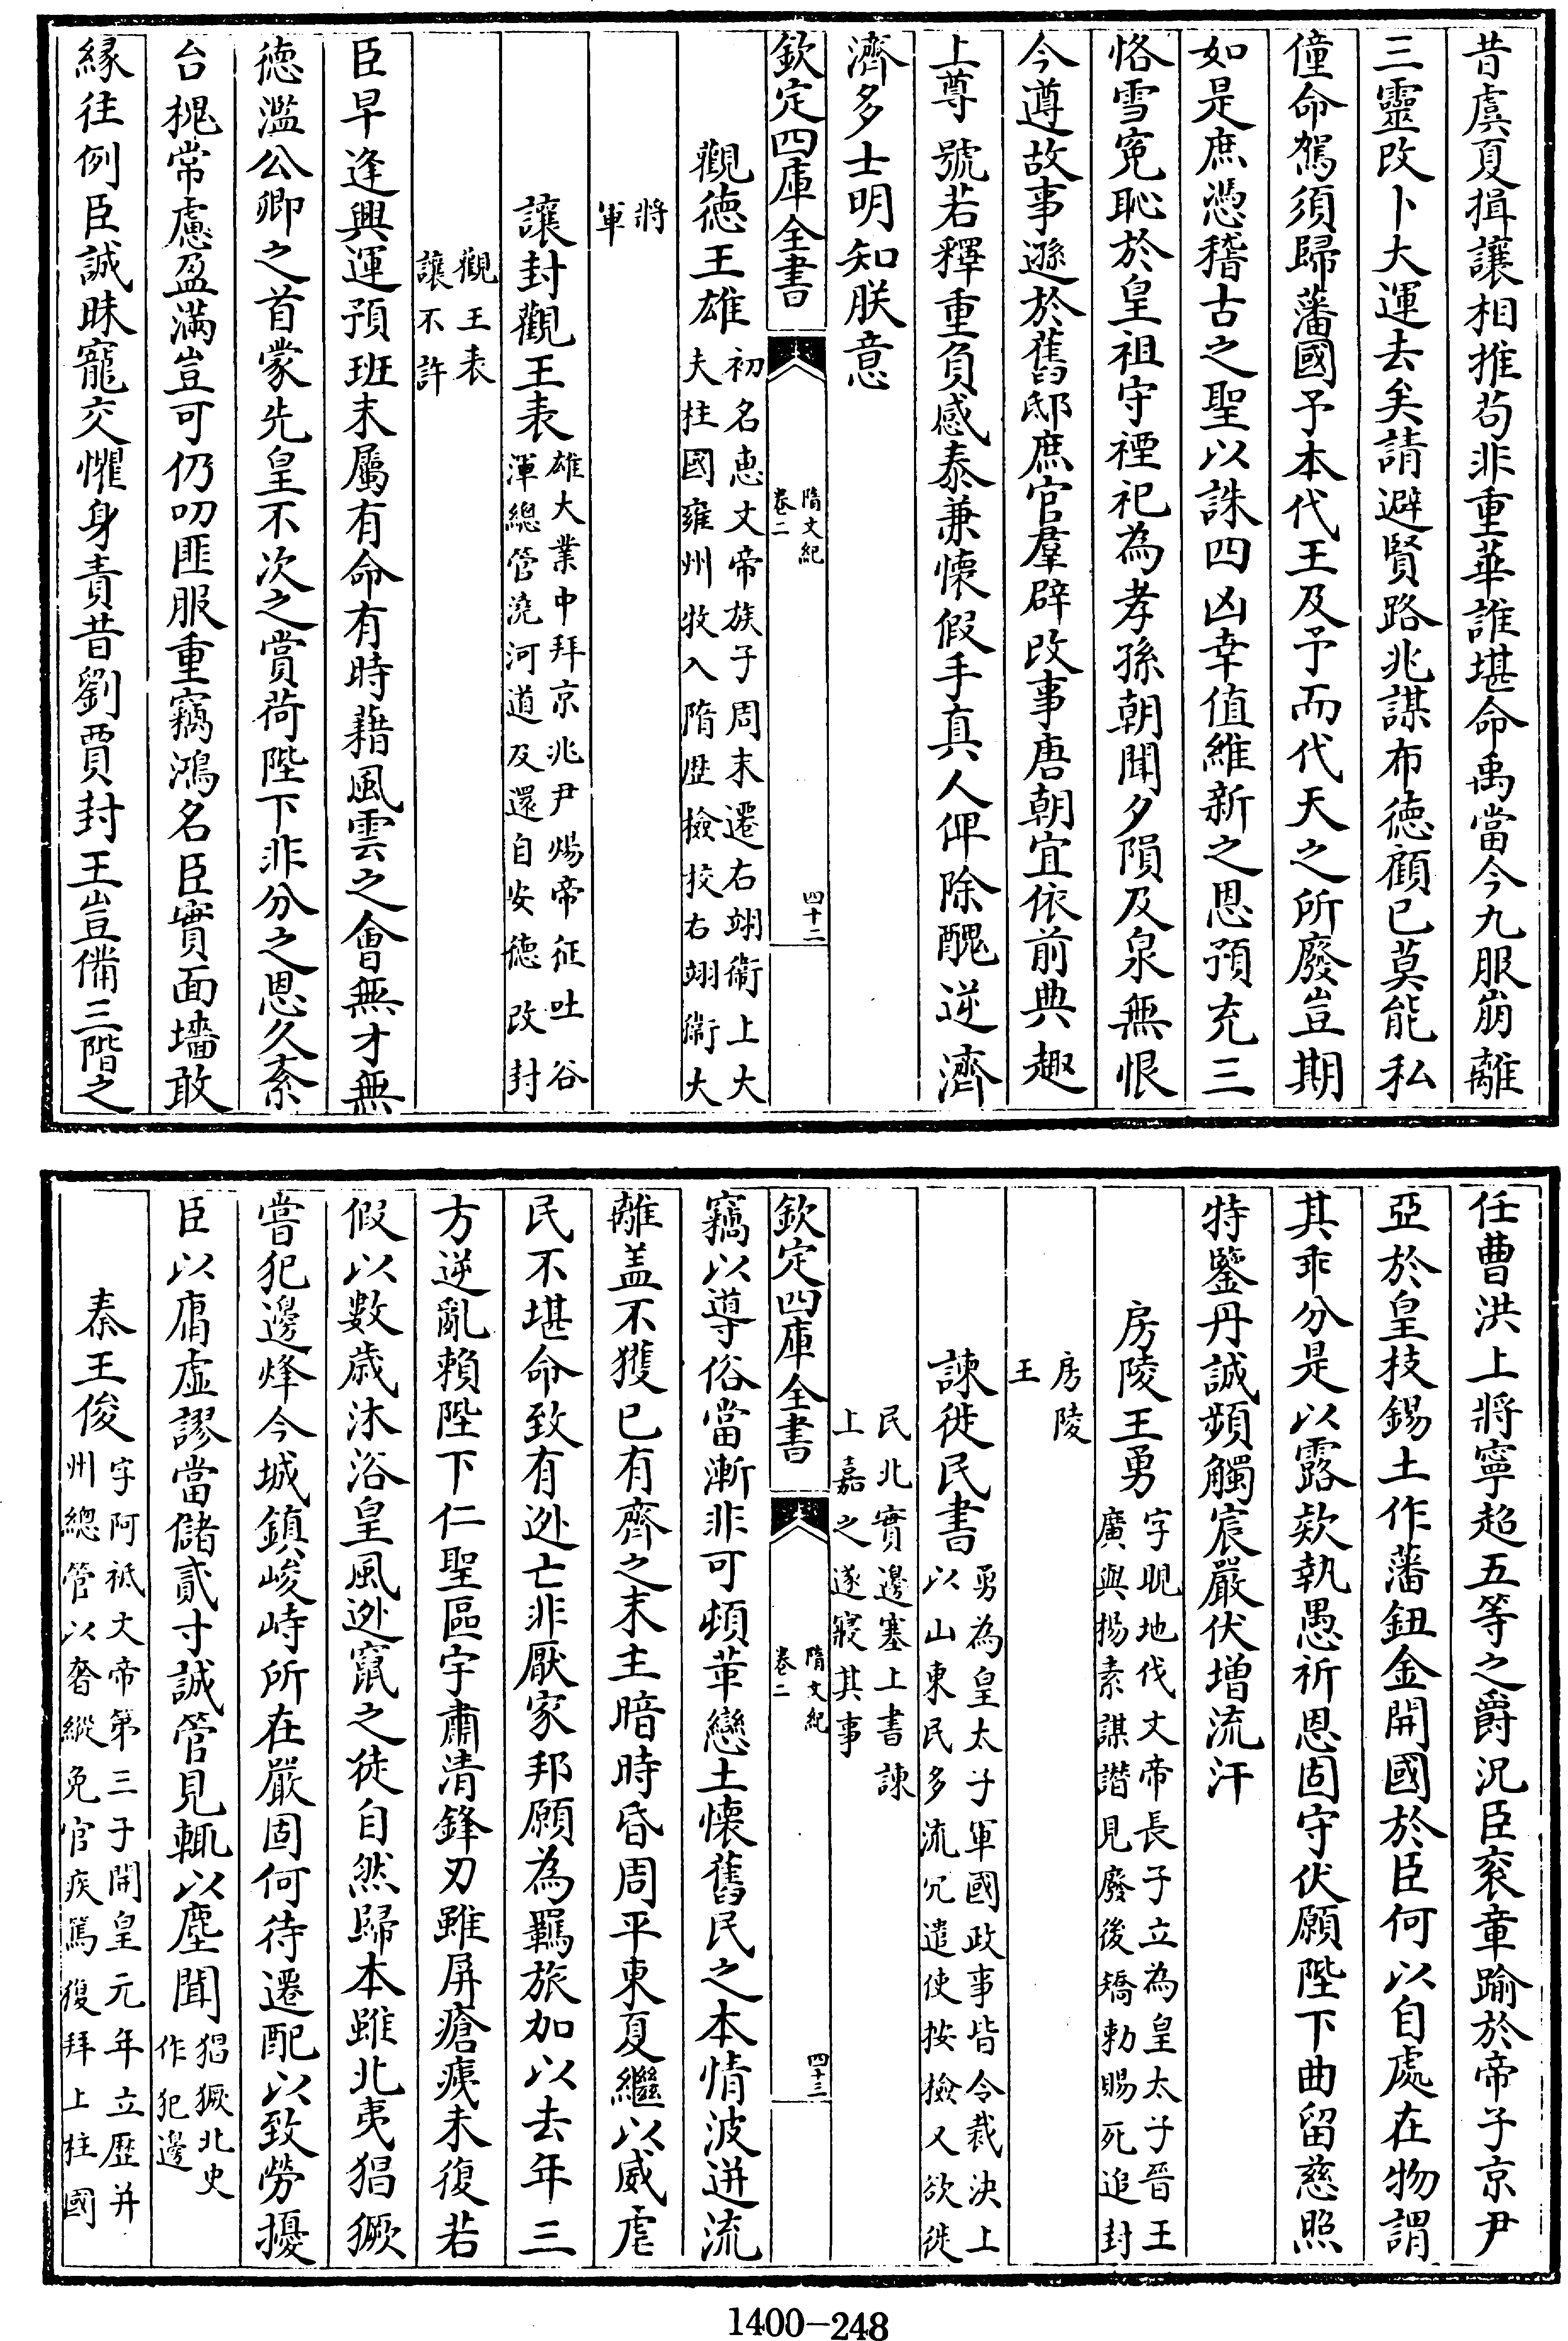 昔虞夏揖讓相推茍非重華誰堪命禹當今九服崩離
三靈改卜大運去矣請避賢路兆謀布徳顧已莫能私
僮命駕須歸藩國予本代王及予而代天之所廢豈期
如是庶憑稽古之聖以誅四凶幸值維新之恩預充三
恪雪寃恥於皇祖守禋祀為孝孫朝聞夕隕及泉無恨
今遵故事遜於舊邸庶官羣辟改事唐朝宜依前典趣
上尊號若釋重負感泰兼懐假手真人俾除醜逆濟
濟多士明知朕意
欽定四庫全書
隋文紀
卷二
四十二
觀徳王雄
初名惠文帝族子周末遷右翊衞上大
夫柱國雍州牧入隋歴檢挍右翊衞大
將
軍
讓封觀王表
雄大業中拜京兆尹煬帝征吐谷
渾總管澆河道及還自安徳改封
觀王表
讓不許
臣早逢興運預班末屬有命有時藉風雲之會無才無
徳濫公卿之首蒙先皇不次之賞荷陛下非分之恩久紊
台槐常慮盈滿豈可仍叨匪服重竊鴻名臣實面墻敢
縁往例臣誠昧寵交懼身責昔劉賈封王豈備三階之
任曹洪上將寧超五等之爵況臣衮章踰於帝子京尹
亞於皇枝錫土作藩鈕金開國於臣何以自處在物謂
其乖分是以露欵執愚祈恩固守伏願陛下曲留慈照
特鑒丹誠頻觸宸嚴伏増流汗
房陵王勇
字睍地伐文帝長子立為皇太子晉王
廣與楊素謀譖見廢後矯勅賜死追封
房陵
王
諫徙民書
勇為皇太子軍國政事皆令裁決上
以山東民多流冗遣使按檢又欲徙
民北實邊塞上書諫
上嘉之遂寢其事
欽定四庫全書
隋文紀
卷二
四十三
竊以導俗當漸非可頓革戀土懐舊民之本情波迸流
離盖不獲已有齊之末主暗時昏周平東夏繼以威虐
民不堪命致有逃亡非厭家邦願為羈旅加以去年三
方逆亂賴陛下仁聖區宇肅清鋒刃雖屏瘡痍未復若
假以數歳沐浴皇風逃竄之徒自然歸本雖北夷猖獗
嘗犯邊烽今城鎮峻峙所在嚴固何待遷配以致勞擾
臣以庸虚謬當儲貳寸誠管見輒以塵聞
猖獗北史
作犯邊
秦王俊
字阿祇文帝第三子開皇元年立歴并
州總管以奢縱免官疾篤復拜上柱國
1400-248